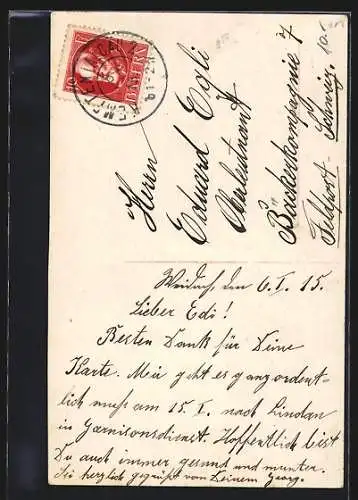 BAYERN
Herrn
Eduard Egli
Oberleutnant
Bäckerkompagnie 7
Feldpost. Schweiz.
Weidach, den 6. I. 15.
Lieber Edi!
Besten Dank für Deine
Karte. Mir geht es ganz ordent-
lich muß am 15. I. nach Lindau
in Garnisonsdienst. Hoffentlich bist
Du auch immer gesund und munter.
Sei herzlich gegrüßt von Deinem Georg.